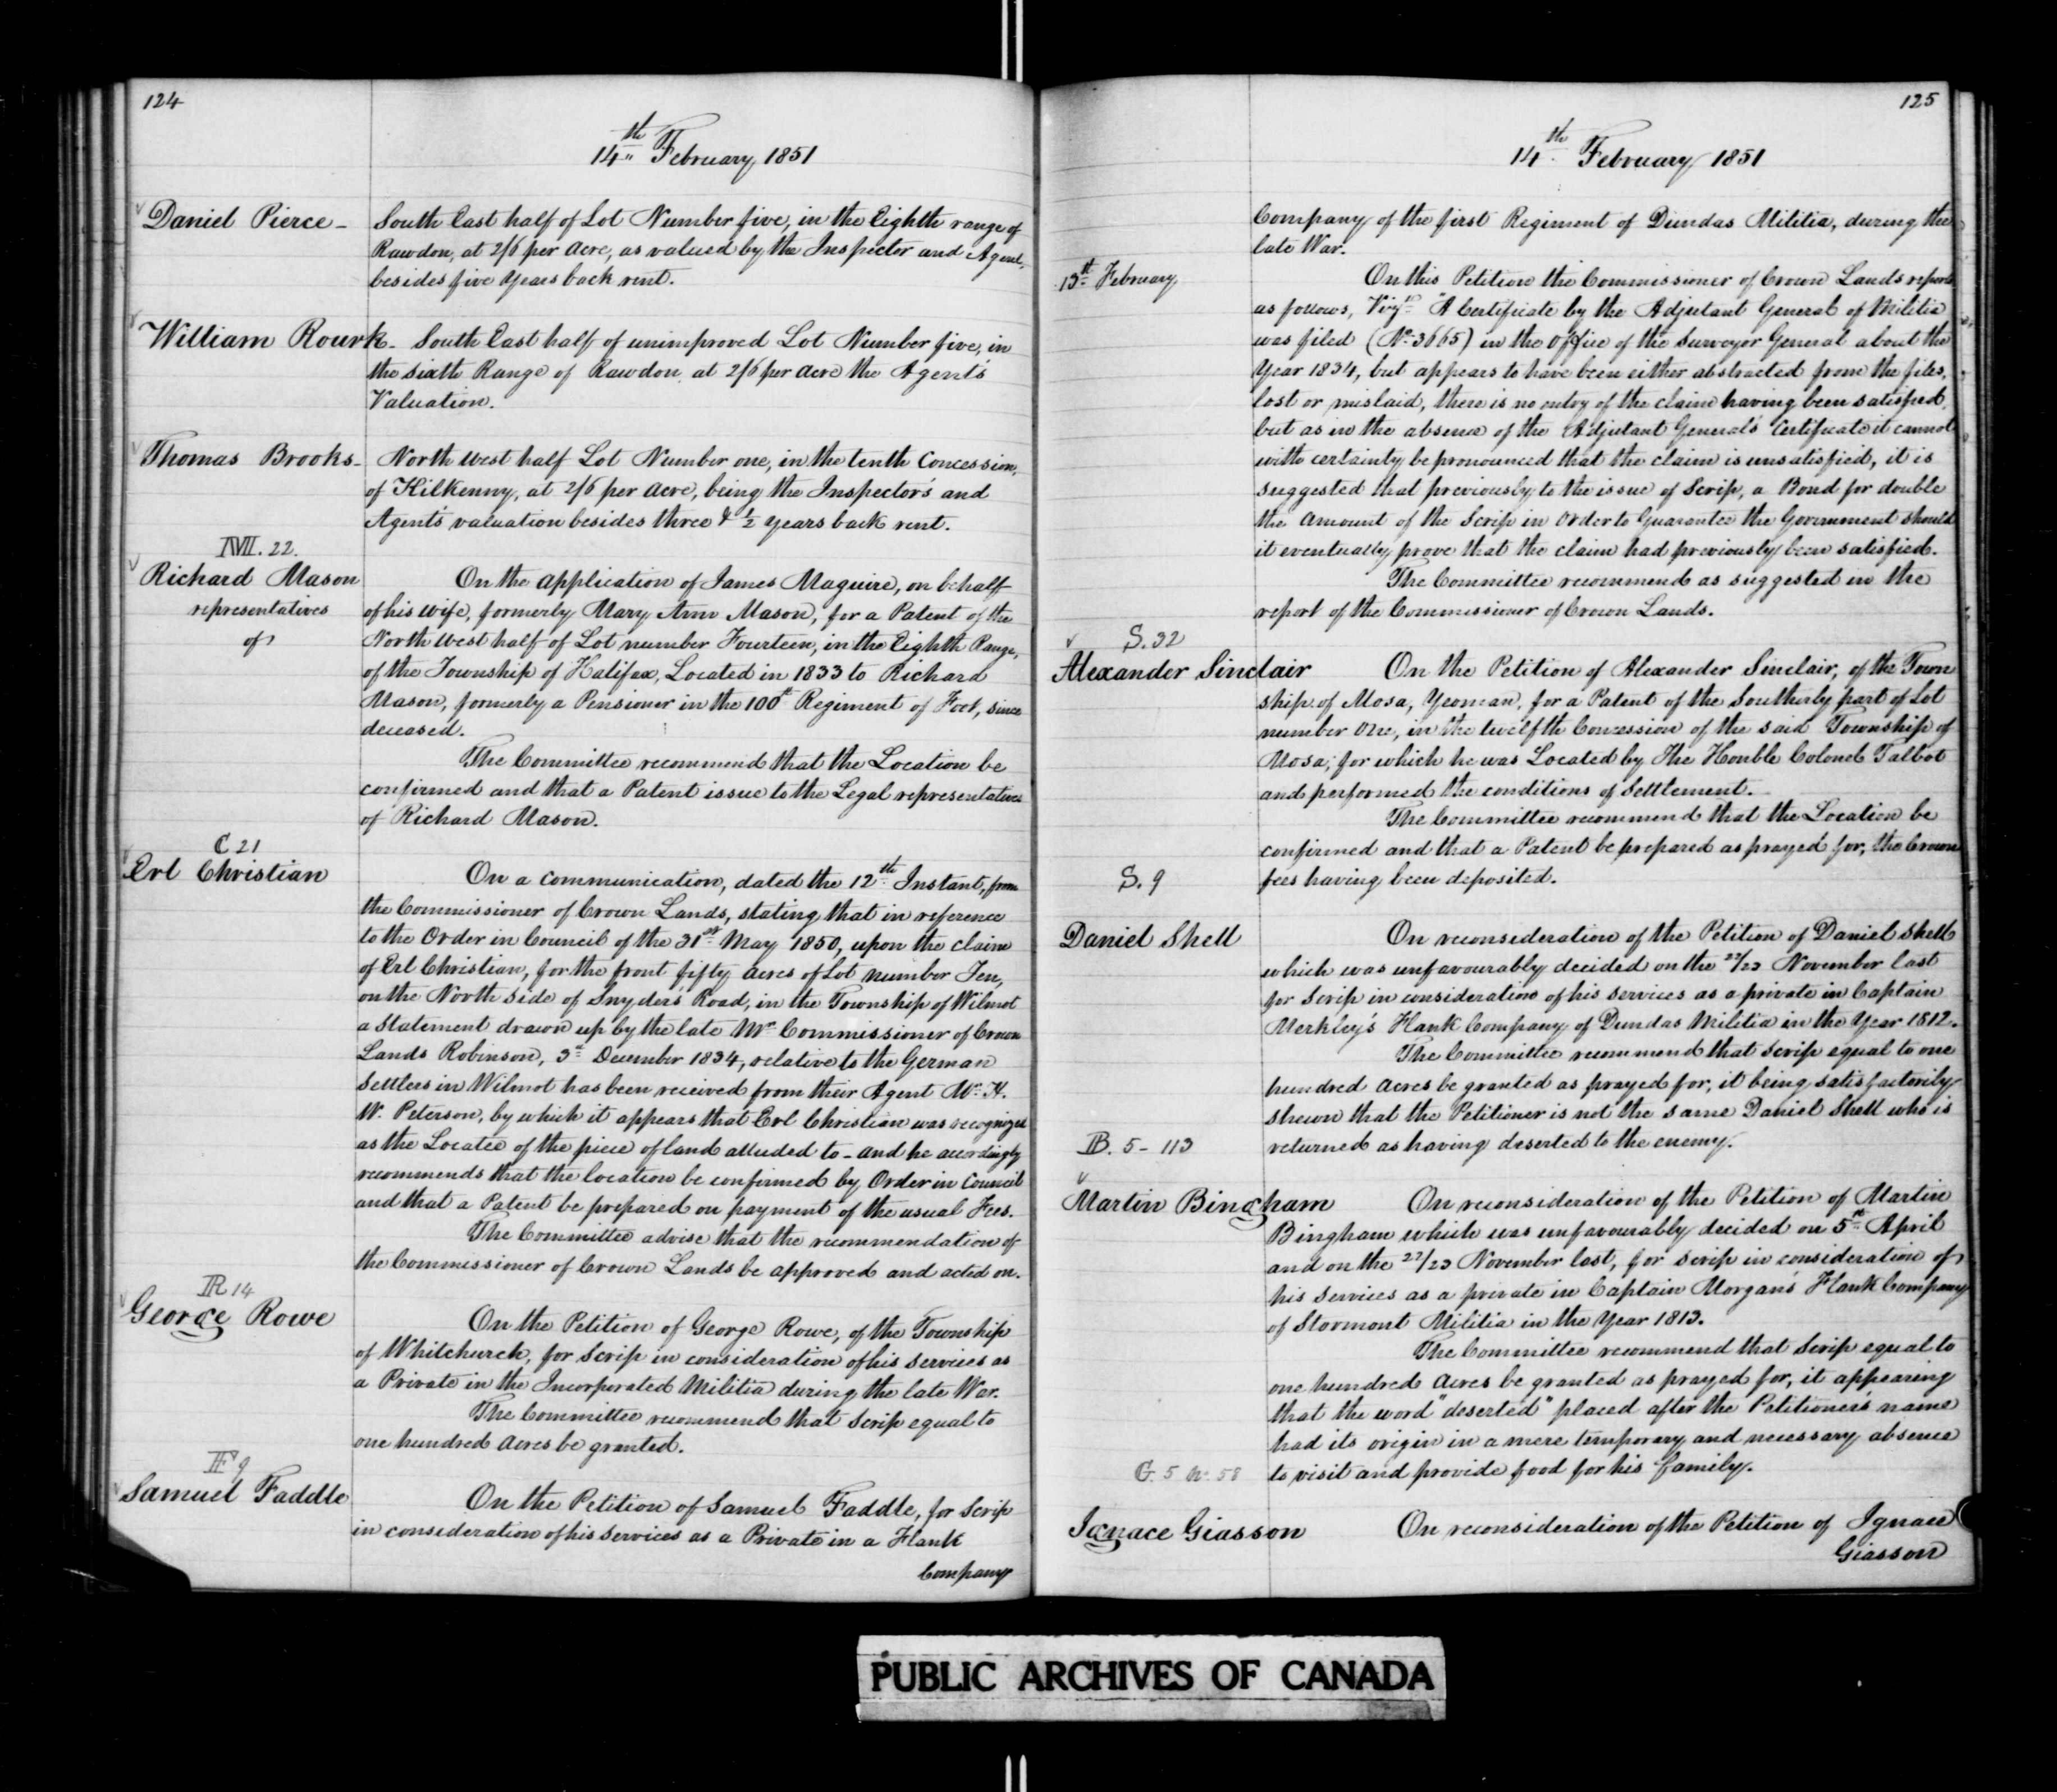 124
14th February 1851
Daniel Pierce - South East half of Lot Number five, in the Eighth range of
Rawdon, at 2/6 per acre, as valued by the Inspector and Agent,
besides five years back rent.
William Rourk - South East half of unimproved Lot Number five, in
the sixth Range of Rawdon, at 2/6 per acre the Agent's
Valuation.
Thomas Brooks - North west half Lot Number one, in the tenth Concession,
of Kilkenny, at 2/6 per acre, being the Inspector's and
Agent's valuation besides three & 1/2 years back rent.
M. 22.
Richard Mason
representatives
of
On the application of James Maguire, on behalf
of his wife, formerly Mary Ann Mason, for a Patent of the
North west half of Lot number Fourteen, in the Eighth Range,
of the Township of Halifax, Located in 1833 to Richard
Mason, formerly a Pensioner in the 100th Regiment of Foot, since
deceased.
The Committee recommend that the Location be
confirmed and that a Patent issue to the Legal representatives
of Richard Mason.
C 21
Erl Christian
On a communication, dated the 12th Instant, from
the Commissioner of Crown Lands, stating that in reference
to the Order in Council of the 31st May 1850, upon the claim
of Erl Christian, for the front fifty acres of Lot number Ten,
on the North side of Snyder's Road, in the Township of Wilmot
a statement drawn up by the late Mr Commissioner of Crown
Lands Robinson, 3d December 1834, relative to the German
Settlers in Wilmot has been received from their Agent Mr H.
W. Peterson, by which it appears that Erl Christian was recognized
as the Locatee of the piece of land alluded to - and he accordingly
recommends that the location be confirmed by Order in Council
and that a Patent be prepared on payment of the usual Fees.
The Committee advise that the recommendation of
the Commissioner of Crown Lands be approved and acted on.
R 14
George Rowe
On the Petition of George Rowe, of the Township
of Whitchurch, for Scrip in consideration of his services as
a Private in the Incorporated Militia during the late War.
The Committee recommend that Scrip equal to
one hundred acres be granted.
F 9
Samuel Faddle
On the Petition of Samuel Faddle, for Scrip
in consideration of his services as a Private in a Flank
Company
125
14th February 1851
Company of the first Regiment of Dundas Militia, during the
late War.
13th February
On this Petition the Commissioner of Crown Lands reports
as follows, Vizt "A Certificate by the Adjutant General of Militia
was filed (No 3665) in the Office of the Surveyor General about the
Year 1834, but appears to have been either abstracted from the files,
lost or mislaid, there is no entry of the claim having been satisfied,
but as in the absence of the Adjutant General's Certificate it cannot
with certainty be pronounced that the claim is unsatisfied, it is
suggested that previously to the issue of Scrip, a Bond for double
the amount of the Scrip in order to Guarantee the Government should
it eventually prove that the claim had previously been satisfied.
The Committee recommend as suggested in the
report of the Commissioner of Crown Lands.
S. 32
Alexander Sinclair
On the Petition of Alexander Sinclair, of the Town
ship of Mosa, Yeoman, for a Patent of the Southerly part of Lot
number One, in the twelfth Concession of the said Township of
Mosa; for which he was Located by The Honble Colonel Talbot
and performed the conditions of Settlement.
The Committee recommend that the Location be
confirmed and that a Patent be prepared as prayed for, the Crown
fees having been deposited.
S. 9
Daniel Shell
On reconsideration of the Petition of Daniel Shell
which was unfavourably decided on the 22/23 November last
for Scrip in consideration of his services as a private in Captain
Merkley's Flank Company of Dundas Militia in the Year 1812.
The Committee recommend that Scrip equal to one
hundred acres be granted as prayed for, it being satisfactorily
shewn that the Petitioner is not the same Daniel Shell who is
returned as having deserted to the enemy.
B. 5 - 113
Martin Bingham
On reconsideration of the Petition of Martin
Bingham which was unfavourably decided on 5th April
and on the 22/23 November last, for Scrip in consideration of
his services as a private in Captain Morgan's Flank Company
of Stormont Militia in the Year 1813.
The Committee recommend that Scrip equal to
one hundred acres be granted as prayed for, it appearing
that the word "deserted" placed after the Petitioner's name
had its origin in a mere temporary and necessary absence
to visit and provide food for his family.
G. 5 No 58
Ignace Giasson
On reconsideration of the Petition of Ignace
Giasson
PUBLIC ARCHIVES OF CANADA